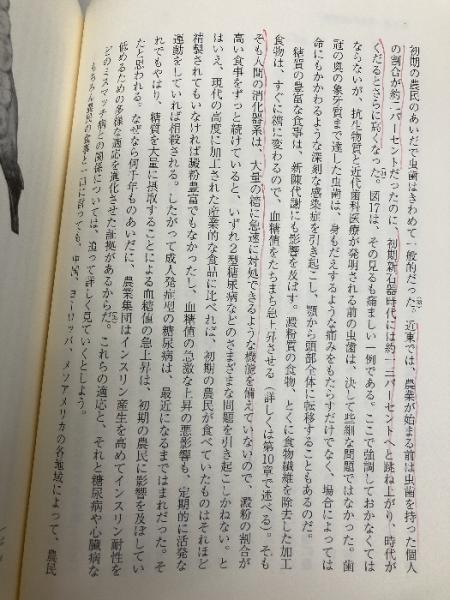 初期の農民のあいだで虫歯はきわめて一般的だった。近東では、農業が始まる前は虫歯を持った個人
の割合が約二パーセントだったのに、初期新石器時代には約一三パーセントへと跳ね上がり、時代が
くだるとさらに高くなった。図17は、その見るも痛ましい一例である。ここで強調しておかなくては
ならないが、抗生物質と近代歯科医療が発明される前の虫歯は、決して些細な問題ではなかった。歯
冠の奥の象牙質まで達した虫歯は、身もだえするような痛みをもたらすだけでなく、場合によっては
命にもかかわるような深刻な感染症を引き起こし、顎から頭部全体に転移することもあるのだ。
糖質の豊富な食事は、新陳代謝にも影響を及ぼす。澱粉質の食物、とくに食物繊維を除去した加工
食物は、すぐに糖に変わるので、血糖値をたちまち急上昇させる（詳しくは第10章で述べる）。そも
そも人間の消化器系は、大量の糖に急速に対処できるような機能を備えていないので、澱粉の割合が
高い食事をずっと続けていると、いずれ2型糖尿病などのさまざまな問題を引き起こしかねない。と
はいえ、現代の高度に加工された産業的な食品に比べれば、初期の農民が食べていたものはそれほど
精製されてもいなければ澱粉豊富でもなかったし、血糖値の急激な上昇の悪影響も、定期的に活発な
運動をしていれば相殺される。したがって成人発症型の糖尿病は、最近になるまではまれだった。そ
れでもやはり、糖質を大量に摂取することによる血糖値の急上昇は、初期の農民に影響を及ぼしてい
たと思われる。なぜなら何千年ものあいだに、農業集団はインスリン産生を高めてインスリン耐性を
低めるための多様な適応を進化させた証拠があるからだ。これらの適応と、それと糖尿病や心臓病な
どのミスマッチ病との関係については、追って詳しく見ていくとしよう。
もちろん農民の食事と一口に言っても、中国、ヨーロッパ、メソアメリカの各地域によって、農民